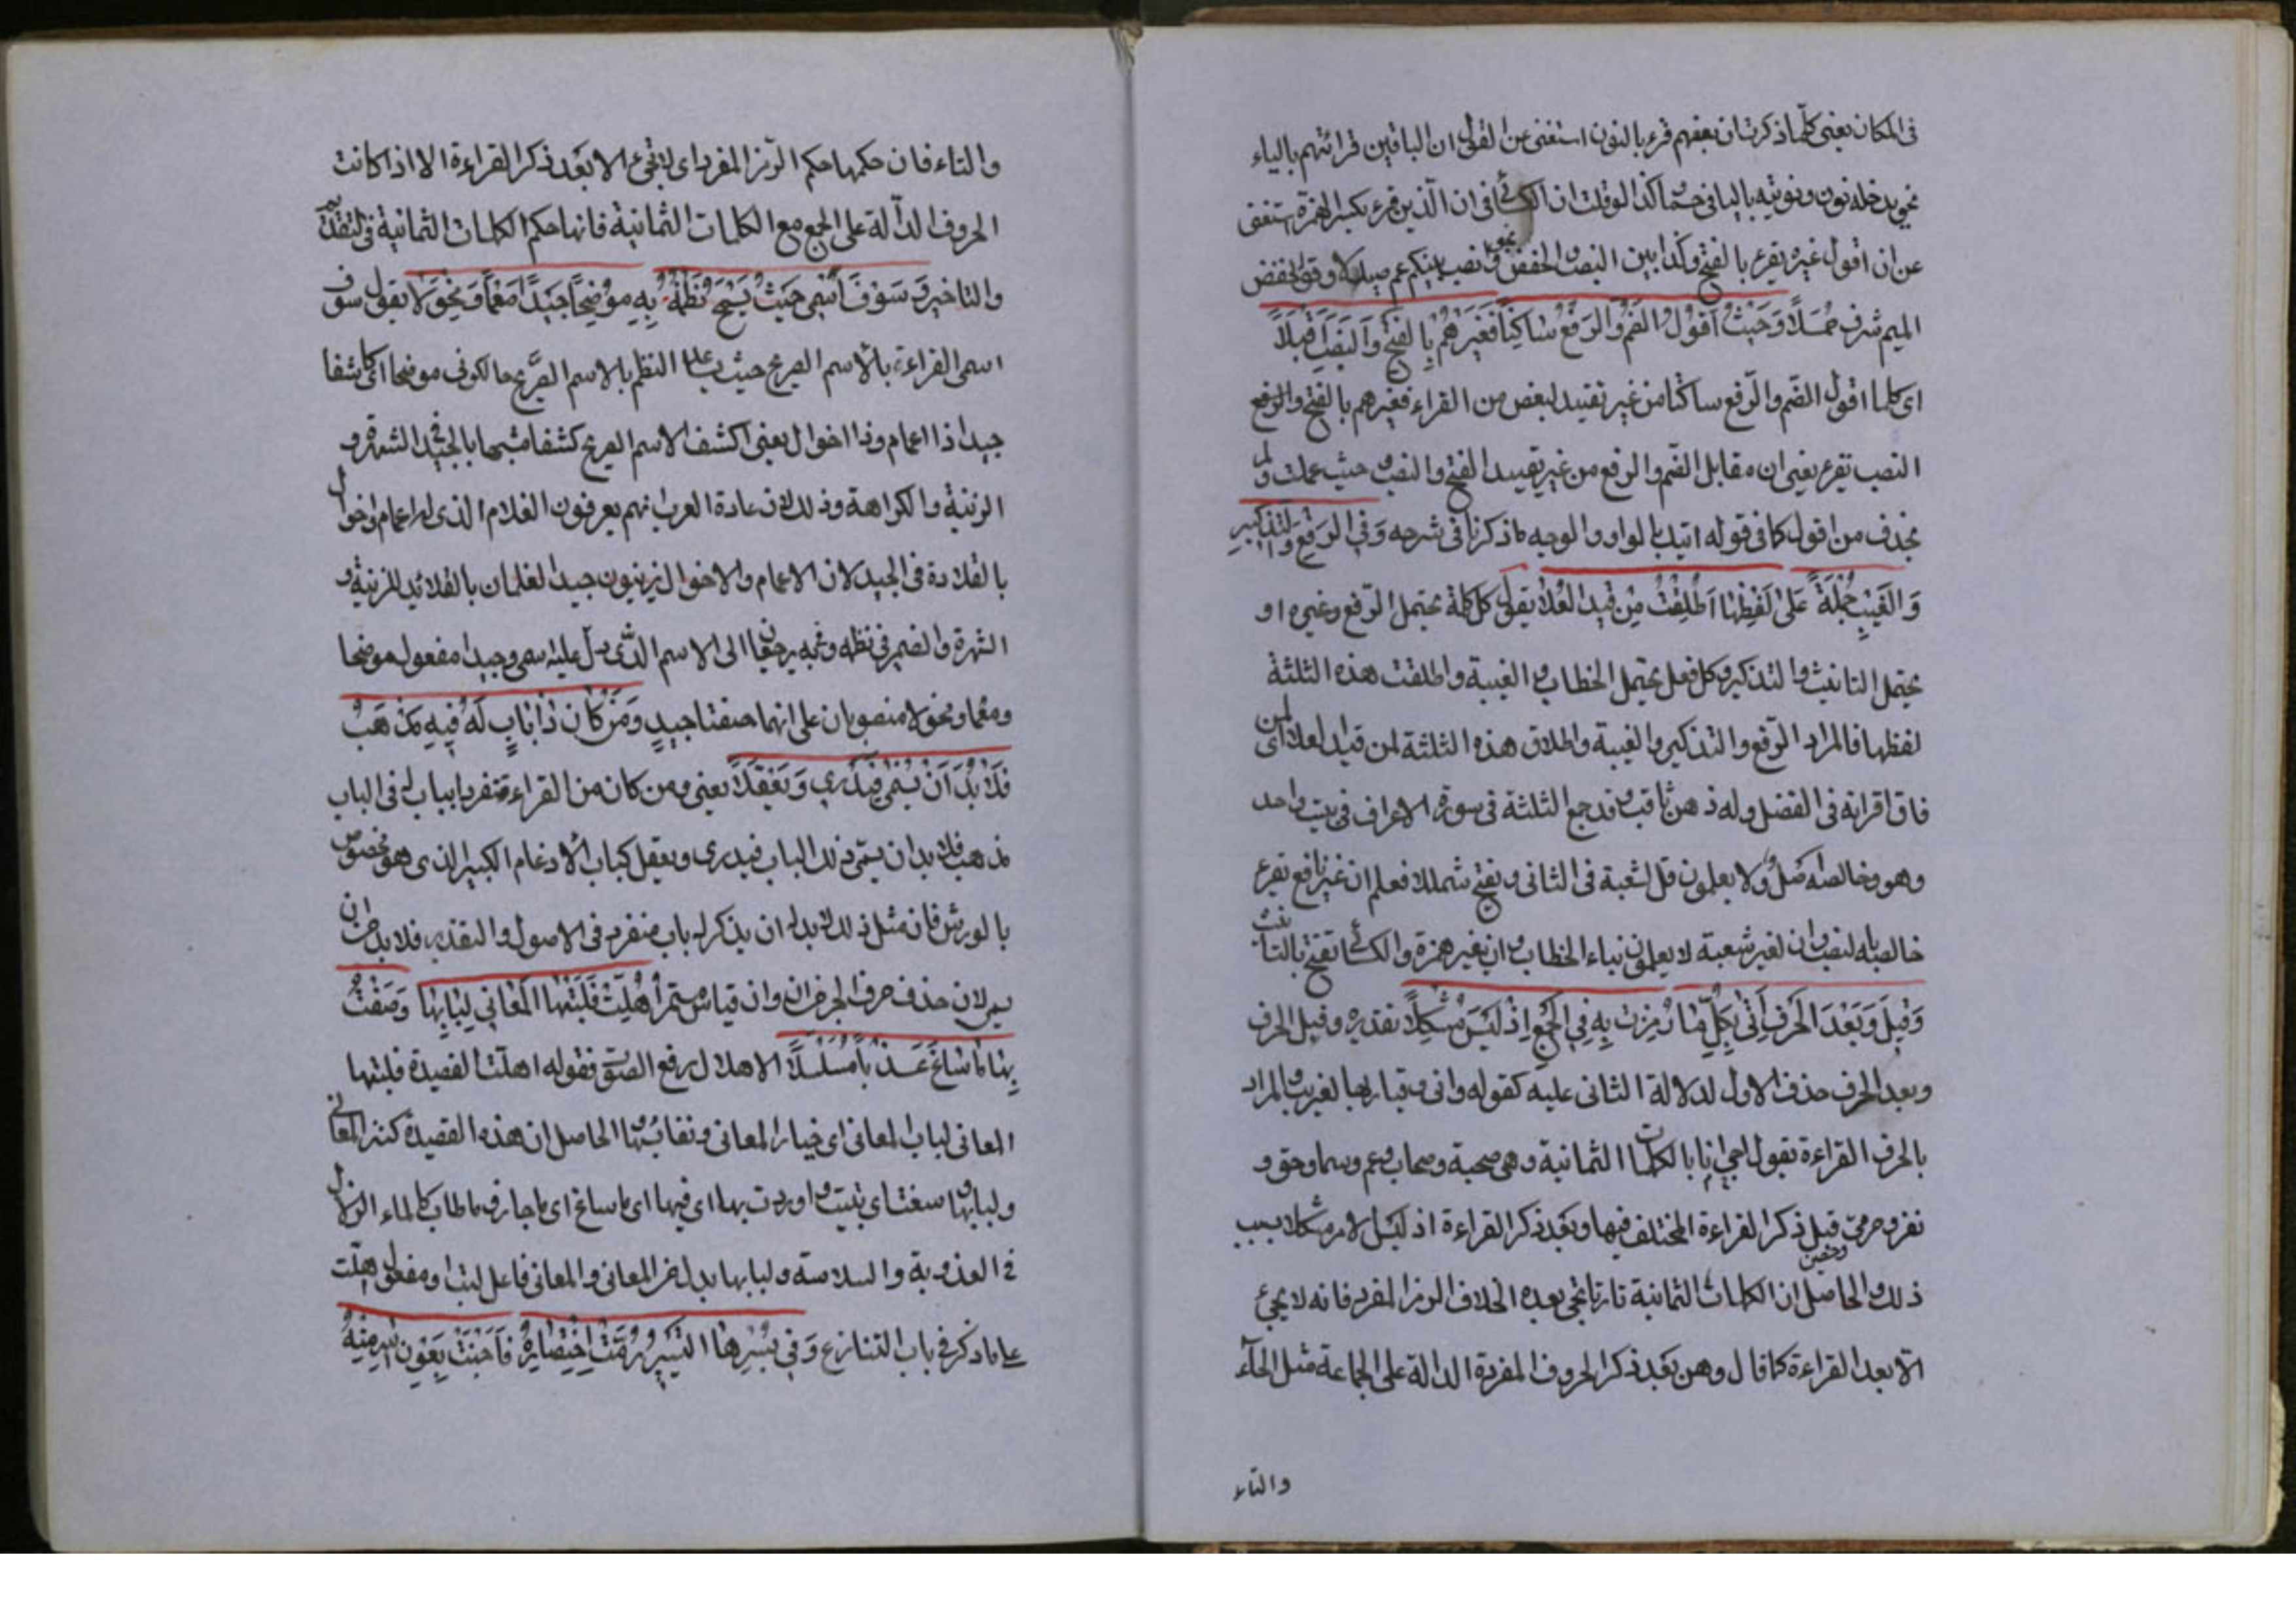 فى المكان يعنى كلما ذكرت ان بعضهم قرء بالنون استغنى عن القول ان الباقين قرائتهم بالياء
نحو يدخله نون ونوتيه باليا فى حما كذا لو قلت ان الكسائى فى ان الذين قرء بكسر الهمزة استغنى
عن ان اقول غيره يقرء بالفتح وكذا بين النصب والخفض نحو وانصب بينكم عم صندلا وقوم بخفض
الميم شرف حملا وَحَيْثُ اَقُوْلُ الضَّمُّ وَالرَّفْعُ سَاكِتًا فَغَيْرُهُمْ بِالْفَتْحِ وَالنَّصْبِ اَقْبَلَا
اى كلما اقول الضم والرفع ساكتا من غير تقييد لبعض من القراء فغيرهم بالفتح والرفع
النصب يقرء يعنى ان مقابل الضم والرفع من غير تقييد الفتح والنصب حيث عملت ولم
يحذف من اقول كما فى قوله اتيت بالواو والوجيه ما ذكرنا فى شرحه وَفِي الرَّفْعِ وَالتَّذْكِيْرِ
وَالْغَيْبِ جُمْلَةٌ عَلٰى لَفْظِهَا اَطْلَقْتُ مِنْ قَيْدِ الْعُلَا يقول كل كلمة يحتمل الرفع وغيره او
يحتمل التانيث والتذكير وكل فعل يحتمل الخطاب والغيبة واطلقت هذه الثلثة
لفظها فالمراد الرفع والتذكير والغيبة واطلاق هذه الثلثة لمن قيد العلا اى لمن
فاق اقرانه فى الفضل وله ذهن ثاقب وقد جمع الثلثة فى سورة الاعراف فى بيت واحد
وهو وخالصة اصل ولا يعلمون قل لشعبة فى الثانى ويفتح شمللا فعلم ان غير نافع يقرء
خالصة بالنصب وان لغير شعبة لا يعلمون بتاء الخطاب وان غير حمزة والكسائى تفتح بالتانيث
وَقَبْلَ وَبَعْدَ الْحَرْفِ اٰتِيْ بِكُلِّ مَا رَمَزْتُ بِهِ فِي الْجَمْعِ اِذْ لَيْسَ مُشْكِلًا تقديره وقبل الحرف
وبعد الحرف حذف الاول لدلالة الثانى عليه كقوله وانى وقيار بها لغريب والمراد
بالحرف القراءة يقول اجئ انا بالكلمات الثمانية وهى صحبة وصحاب وعم وسما وحق و
نفر وحرمى وحصن قبل ذكر القراءة المختلف فيها وبعد ذكر القراءة اذ ليس الامر مشكلا بسبب
ذلك والحاصل ان الكلمات الثمانية تارة تجئ بعده الخلاف الرمز المفرد فانه لا يجئ
الا بعد القراءة كما قال ومن بعد ذكر الحروف المفردة الدالة على الجماعة مثل الحاء
والتاء
والتاء فان حكمها حكم الرمز المفرد اى لا تجئ الا بعد ذكر القراءة الا اذا كانت
الحروف الدالة على الجمع مع الكلمات الثمانية فانها حكم الكلمات الثمانية فى التقديم
والتاخير وَسَوْفَ اُسَمِّيْ حَيْثُ يَسْمَحُ نَظْمُهُ بِهِ مُوْضِحًا جِيْدًا مُعَمًّا وَمُخْوَلًا يقول سوف
اسمى القراءة بالاسم الصريح حيث يساعد النظم بالاسم الصريح حال كونى موضحا اى كاشفا
جيدا ذا اعمام وذا اخوال يعنى اكشف الاسم الصريح كشفا مشبها بالجيد فى الشهرة و
الزينة والكراهة وذلك لان عادة العرب انهم يعرفون الغلام الذى له اعمام واخوال
بالقلادة فى الجيد لان الاعمام والاخوال يزينون جيد الغلمان بالقلائد للزينة و
الشهرة والضمير فى نظمه وبه يرجعان الى الاسم الذى دل عليه اسمى وجيدا مفعول موضحا
ومعما ومخولا منصوبان على انهما صفتا جيد وَمَنْ كَانَ ذَا بَابٍ لَهُ فِيْهِ مَذْهَبٌ
فَلَا بُدَّ اَنْ يُسْمٰى فَيُدْرٰى وَيُعْقَلَا يعنى ومن كان من القراء منفردا بباب له فى الباب
مذهب فلا بد ان يسمى ذلك الباب فيدرى ويعقل كباب الادغام الكبير الذى هو مخصوص
بالورش فان مثل ذلك لا بد له ان يذكر له باب منفرد فى الاصول والتقدير فلا بد من ان
يسمى لان حذف حرف الجر من ان وان قياس مستمر اَهَلَّتْ فَلَبَّتْهَا الْمَعَانِيْ لُبَابُهَا وَصُغْتُ
بِهَا مَا سَاغَ عَذْبًا مُسَلْسَلًا الاهلال رفع الصوت فقوله اهلت القصيدة فلبتها
المعانى لباب المعانى اى خيار المعانى ونقاوتها الحاصل ان هذه القصيدة كثير المعانى
ولبابها وصغت اى بنيت واوردت بها اى فيها اى ما ساغ اى ما جاز وما طاب كالماء الزلال
فى العذوبة والسلاسة ولبابها بدل من المعانى والمعانى فاعل لبت او مفعول اهلت
على ما ذكر فى باب التنازع وَفِيْ يُسْرِهَا التَّيْسِيْرُ رُمْتُ اخْتِصَارَهُ فَاَجْنَتْ بِعَوْنِ اللّٰهِ مِنْهُ